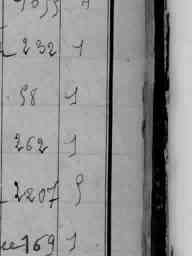 232 1
98 1
262 1
2207 9
169 1